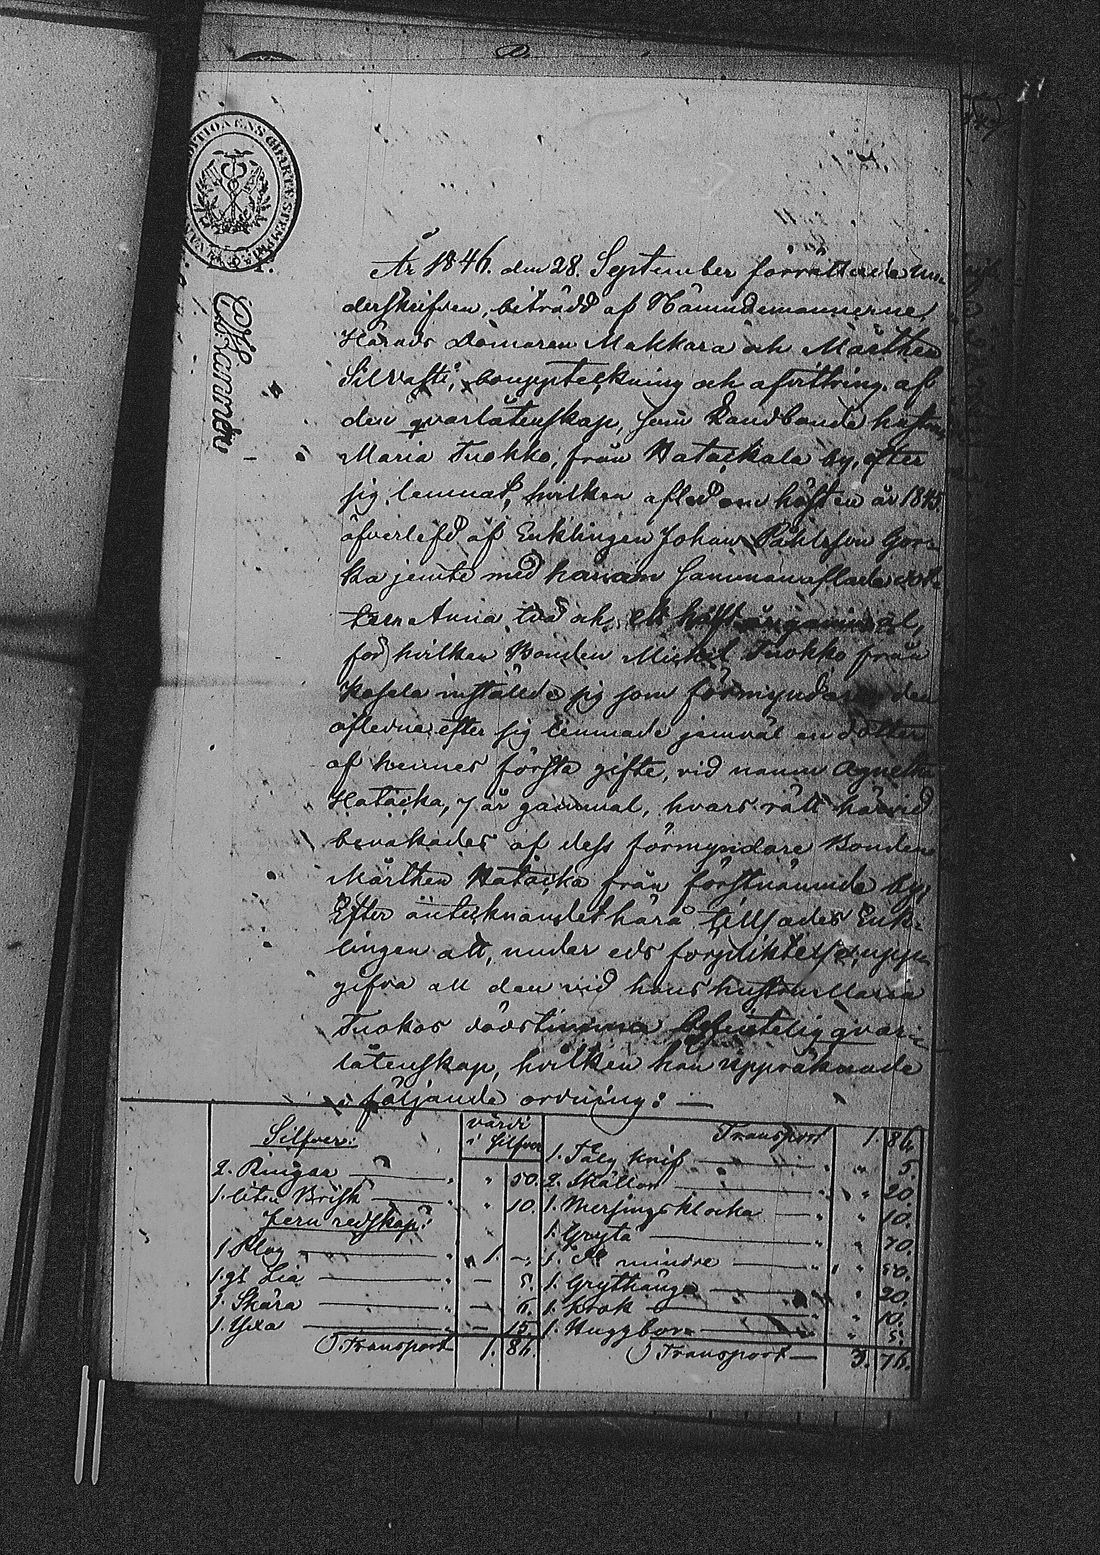 År 1846. den 28. September förrättade un-
derskrifven, biträdd af Nämndemannerne,
Härads Domaren Makkara och Mårthen
Silvasti, bouppteckning och afvittring af
den qvarlåtenskap, som Landbonde hustrun
Maria Tuokko, från Hatackala by, efter
sig lemnat, hvilken afled om hösten år 1845
öfverlefd af Enklingen Johan Påhlsson Gor-
ka jemte med honom sammanaflade dot-
tern Anna två och ett hälft år gammal,
for hvilken Bonden Mickel Tuokko från
Kasela inställde sig som förmyndare den
aflidna efter sig lemnade jemväl en dotter
af hennes första gifte, vid namn Agnetha
Hatacka, 7 år gammal, hvars rätt härvid
bevakades af dess förmyndare Bonden
Mårthen Hatacka från förstnämnde by,
Efter antecknandet häraf tillsades Enk-
lingen att, under eds förpliktelse, upp-
gifva all den vid hans hustru Maria
Tuokos dödstimma befintelig qvar-
låtenskap, hvilken han uppräknade
i följande ordning: —
Silfver:
värdi
i Silfver
2. Ringar — " 50.
1. liten Brisk — " 10.
Jern redskap:
1 Plog — " 1. —
1. gl Lia — — 5.
1. Skära — — 6.
1. Yxa — — 15.
Transport 1. 86.
Transport 1. 86.
1. Tälg knif — " 5.
2. Skållor — " 20.
1. Messings klocka — " 10.
1. Gryta — " 70.
1. d:o mindre — " 50.
1. Grythänge — " 20.
1. Krok — " 10.
1. Huggborr — " 5.
Transport — 3. 76.